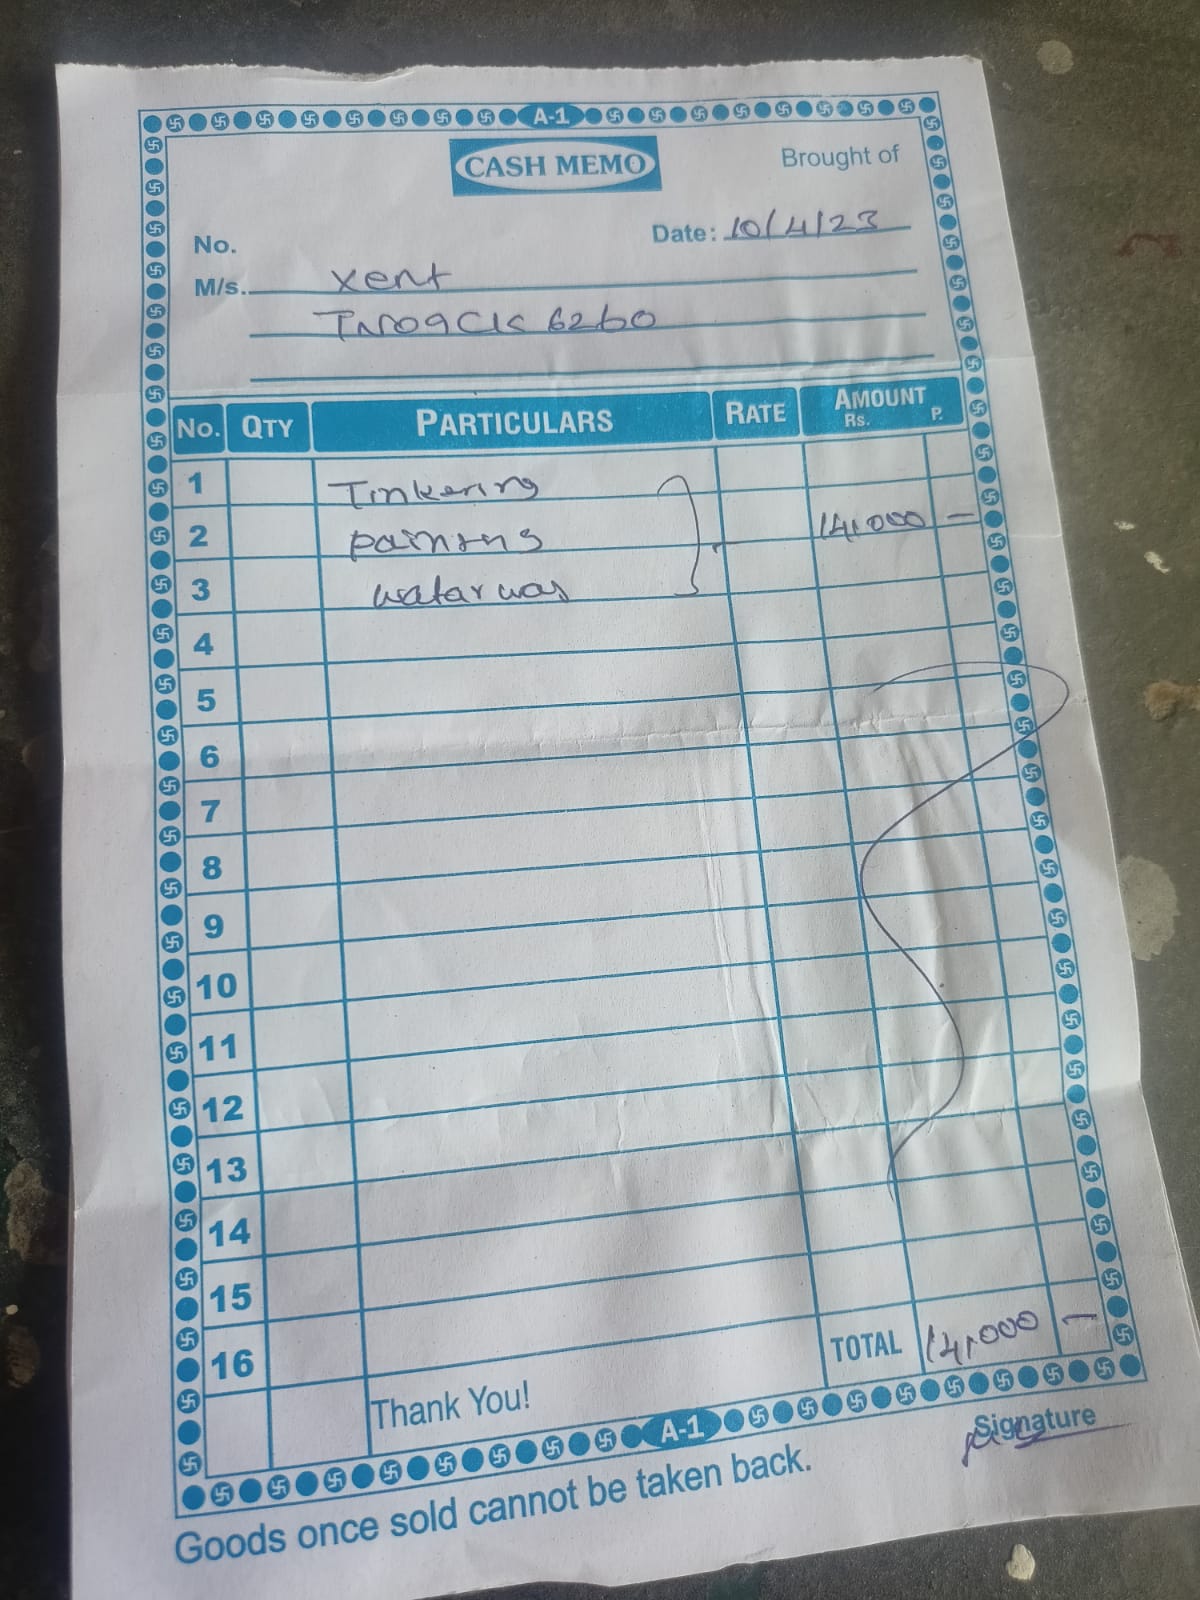 A-1
CASH MEMO
Brought of
No.
Date: 10/4/23
M/s. Xent
6260
No. QTY PARTICULARS RATE AMOUNT
Rs. P.
1 Tinkering
2 painting 14,000 —
3 watar was
4
5
6
7
8
9
10
11
12
13
14
15
16
TOTAL 14,000 —
Thank You!
A-1
Signature
Goods once sold cannot be taken back.